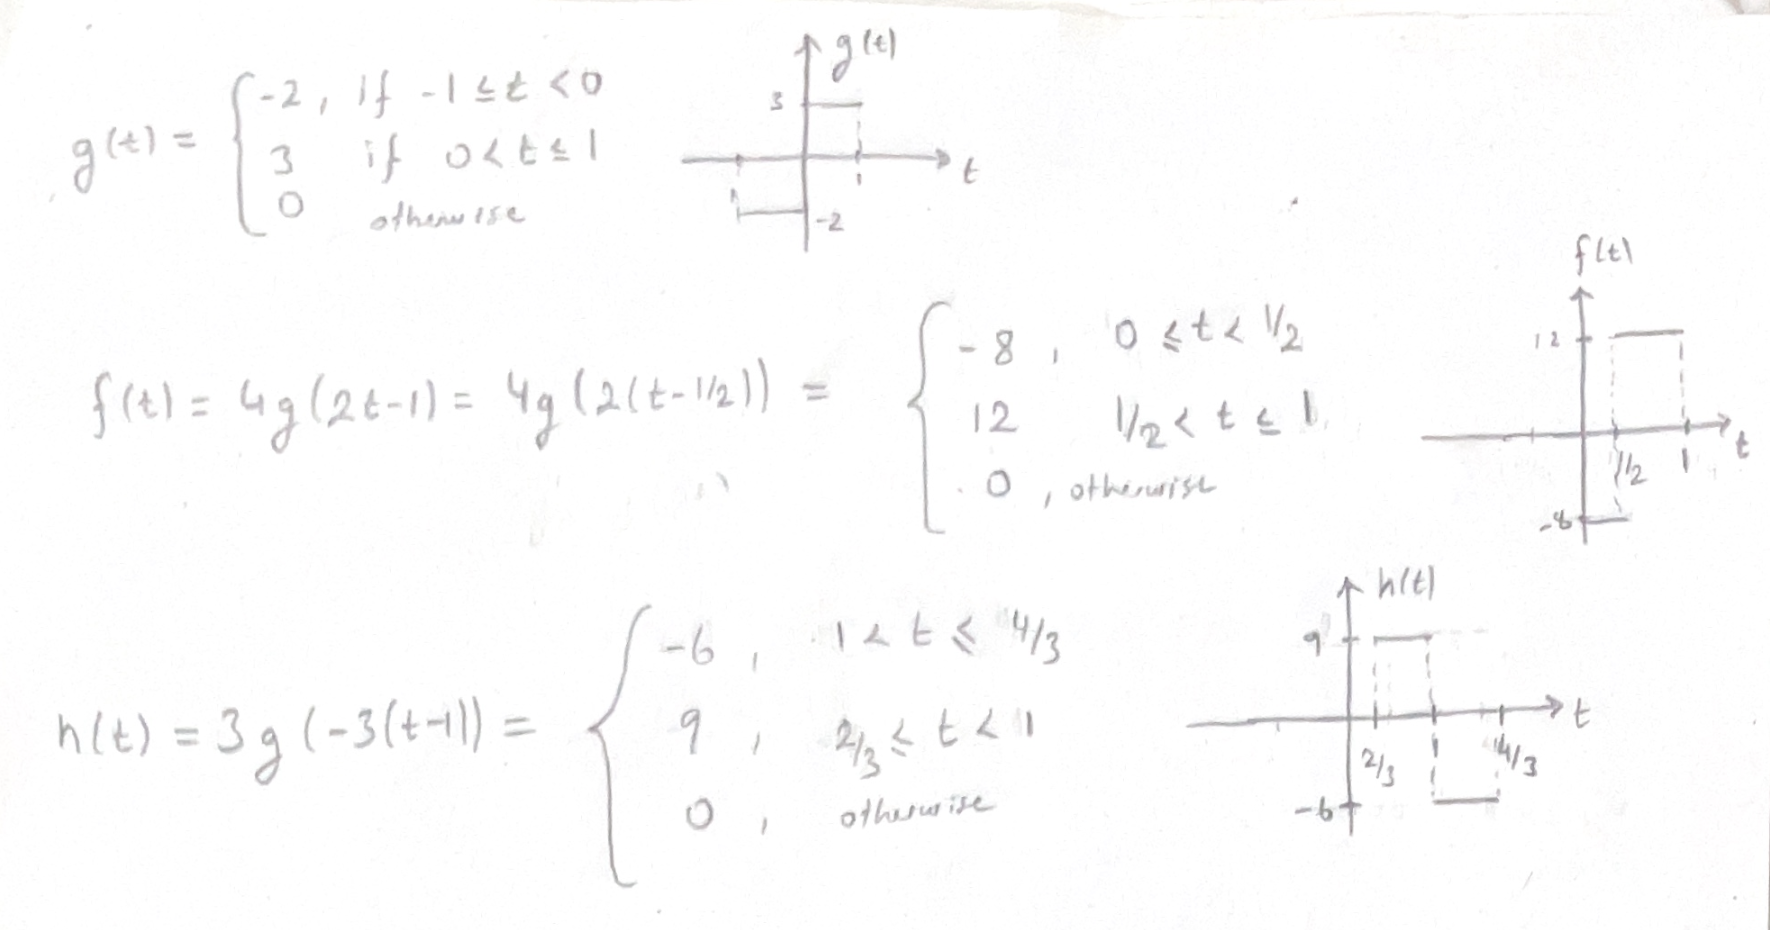 g(t) = { -2, if -1 ≤ t < 0
3 if 0 < t ≤ 1
0 otherwise
g(t)
3
1
t
-2
f(t) = 4g(2t-1) = 4g(2(t-1/2)) = { -8, 0 ≤ t < 1/2
12 1/2 < t ≤ 1
0, otherwise
f(t)
12
1/2 1 t
-8
h(t) = 3g(-3(t-1)) = { -6, 1 < t ≤ 4/3
9, 2/3 ≤ t < 1
0, otherwise
h(t)
9
2/3 1 4/3 t
-6